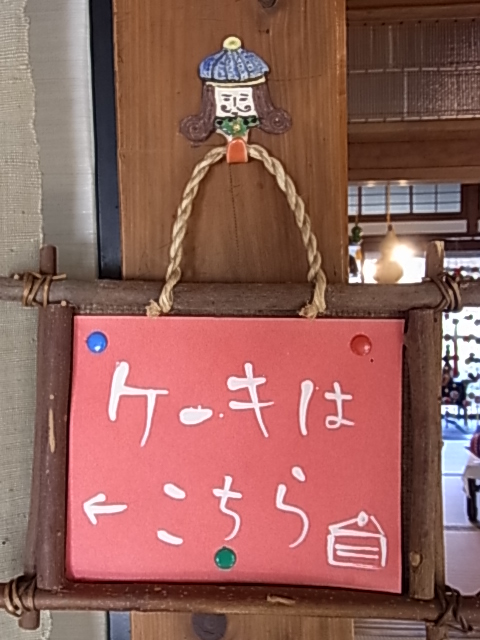 ケーキは
←こちら